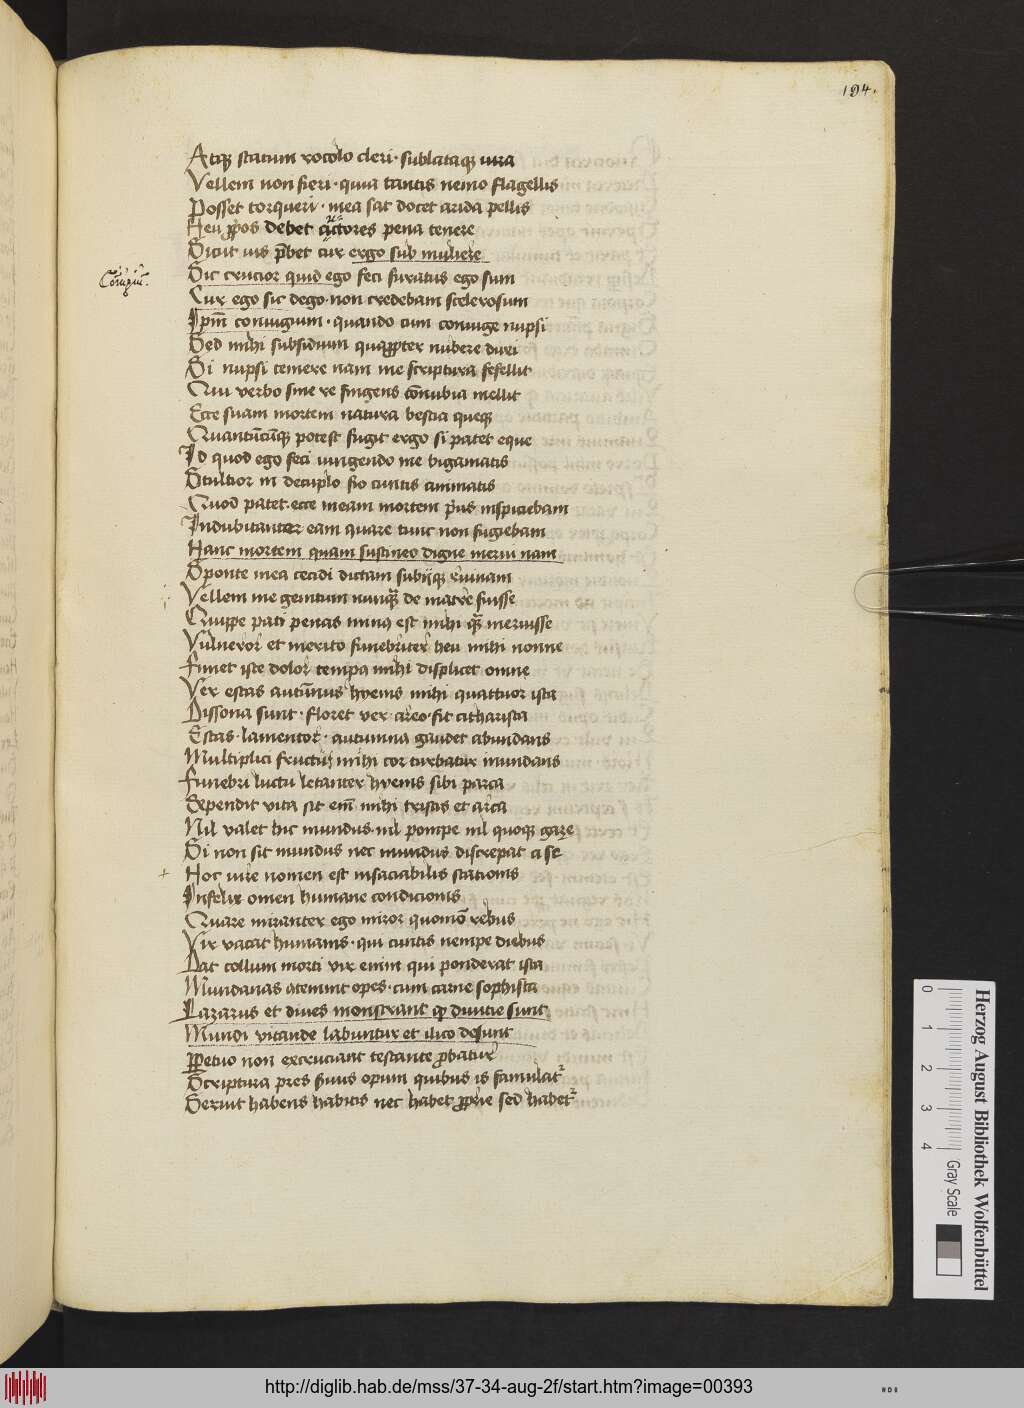 194.
Atq statum rocolo cleri · sublataq iura
Vellem non fieri · quia tantis nemo flagellis
Posset torqueri · mea sat docet arida pellis
Heu ꝓpos debet auctores pena tenere
Sicut uis p̄bet cur ergo sub muliere
Coniugiū.
Sic crucior quid ego feci furatus ego sum
Cur ego sic dego · non credebam scelerosum
Ipm̄ coniugium · quando cum coniuge nupsi
Sed mihi subsidium quaꝓpter nubere duxi
Si nupsi temere nam me scriptura fefellit
Qui verbo sine re fingens cōnubia mellit
Ecce suam mortem natura bestia queq
Quantūcūq potest fugit ergo si patet eque
Id quod ego feci iungendo me bigamatis
Stultior in decuplo sio cuntis animatis
Quod patet · ecce meam mortem p̄us inspiciebam
Indubitanter eam quare tunc non fugiebam
Hanc mortem quam sustineo digne merui nam
Sponte mea cecidi dictam subiq ruinam
Vellem me genitum nunq̄ de matre fuisse
Quippe pati penas minus est mihi q̄ meruisse
Vulneror et merito funebriter heu mihi nonne
Finiet iste dolor tempus mihi displicet omne
Ver estas autūnus hyems mihi quattuor ista
Dissona sunt · floret ver · areo · fit citharista
Estas · lamentor · autumna gaudet abundans
Multiplici fructu mihi cor turbatur mundans
Funebri luctu letanter hyems sibi parca
Dependit vita sit em̄ mihi tristis et arca
Nil valet hic mundus · nil pompe nil quoq gaze
Si non sit mundus nec mundus discrepat a se
Hoc iure nomen est insaciabilis stationis
Infelix omen humane condicionis
Quare mirantur ego miror quomō rebus
Vir vacat humanis · qui cuntis nempe diebus
Dat collum morti vix enim qui ponderat ista
Mundanas atemnit opes · cum carne sophista
Lazarus et diues monstrant ꝙ diuicie sunt
Mundi vitande labuntur et ilico desunt
ꝑpetuo non excruciant testante ꝓbatur
Scriptura pres siuus opum quibus is famulatr
Seruit habens habitis nec habet ꝓprie sed habetr
Herzog August Bibliothek Wolfenbüttel
0 1 2 3 4
Gray Scale
http://diglib.hab.de/mss/37-34-aug-2f/start.htm?image=00393